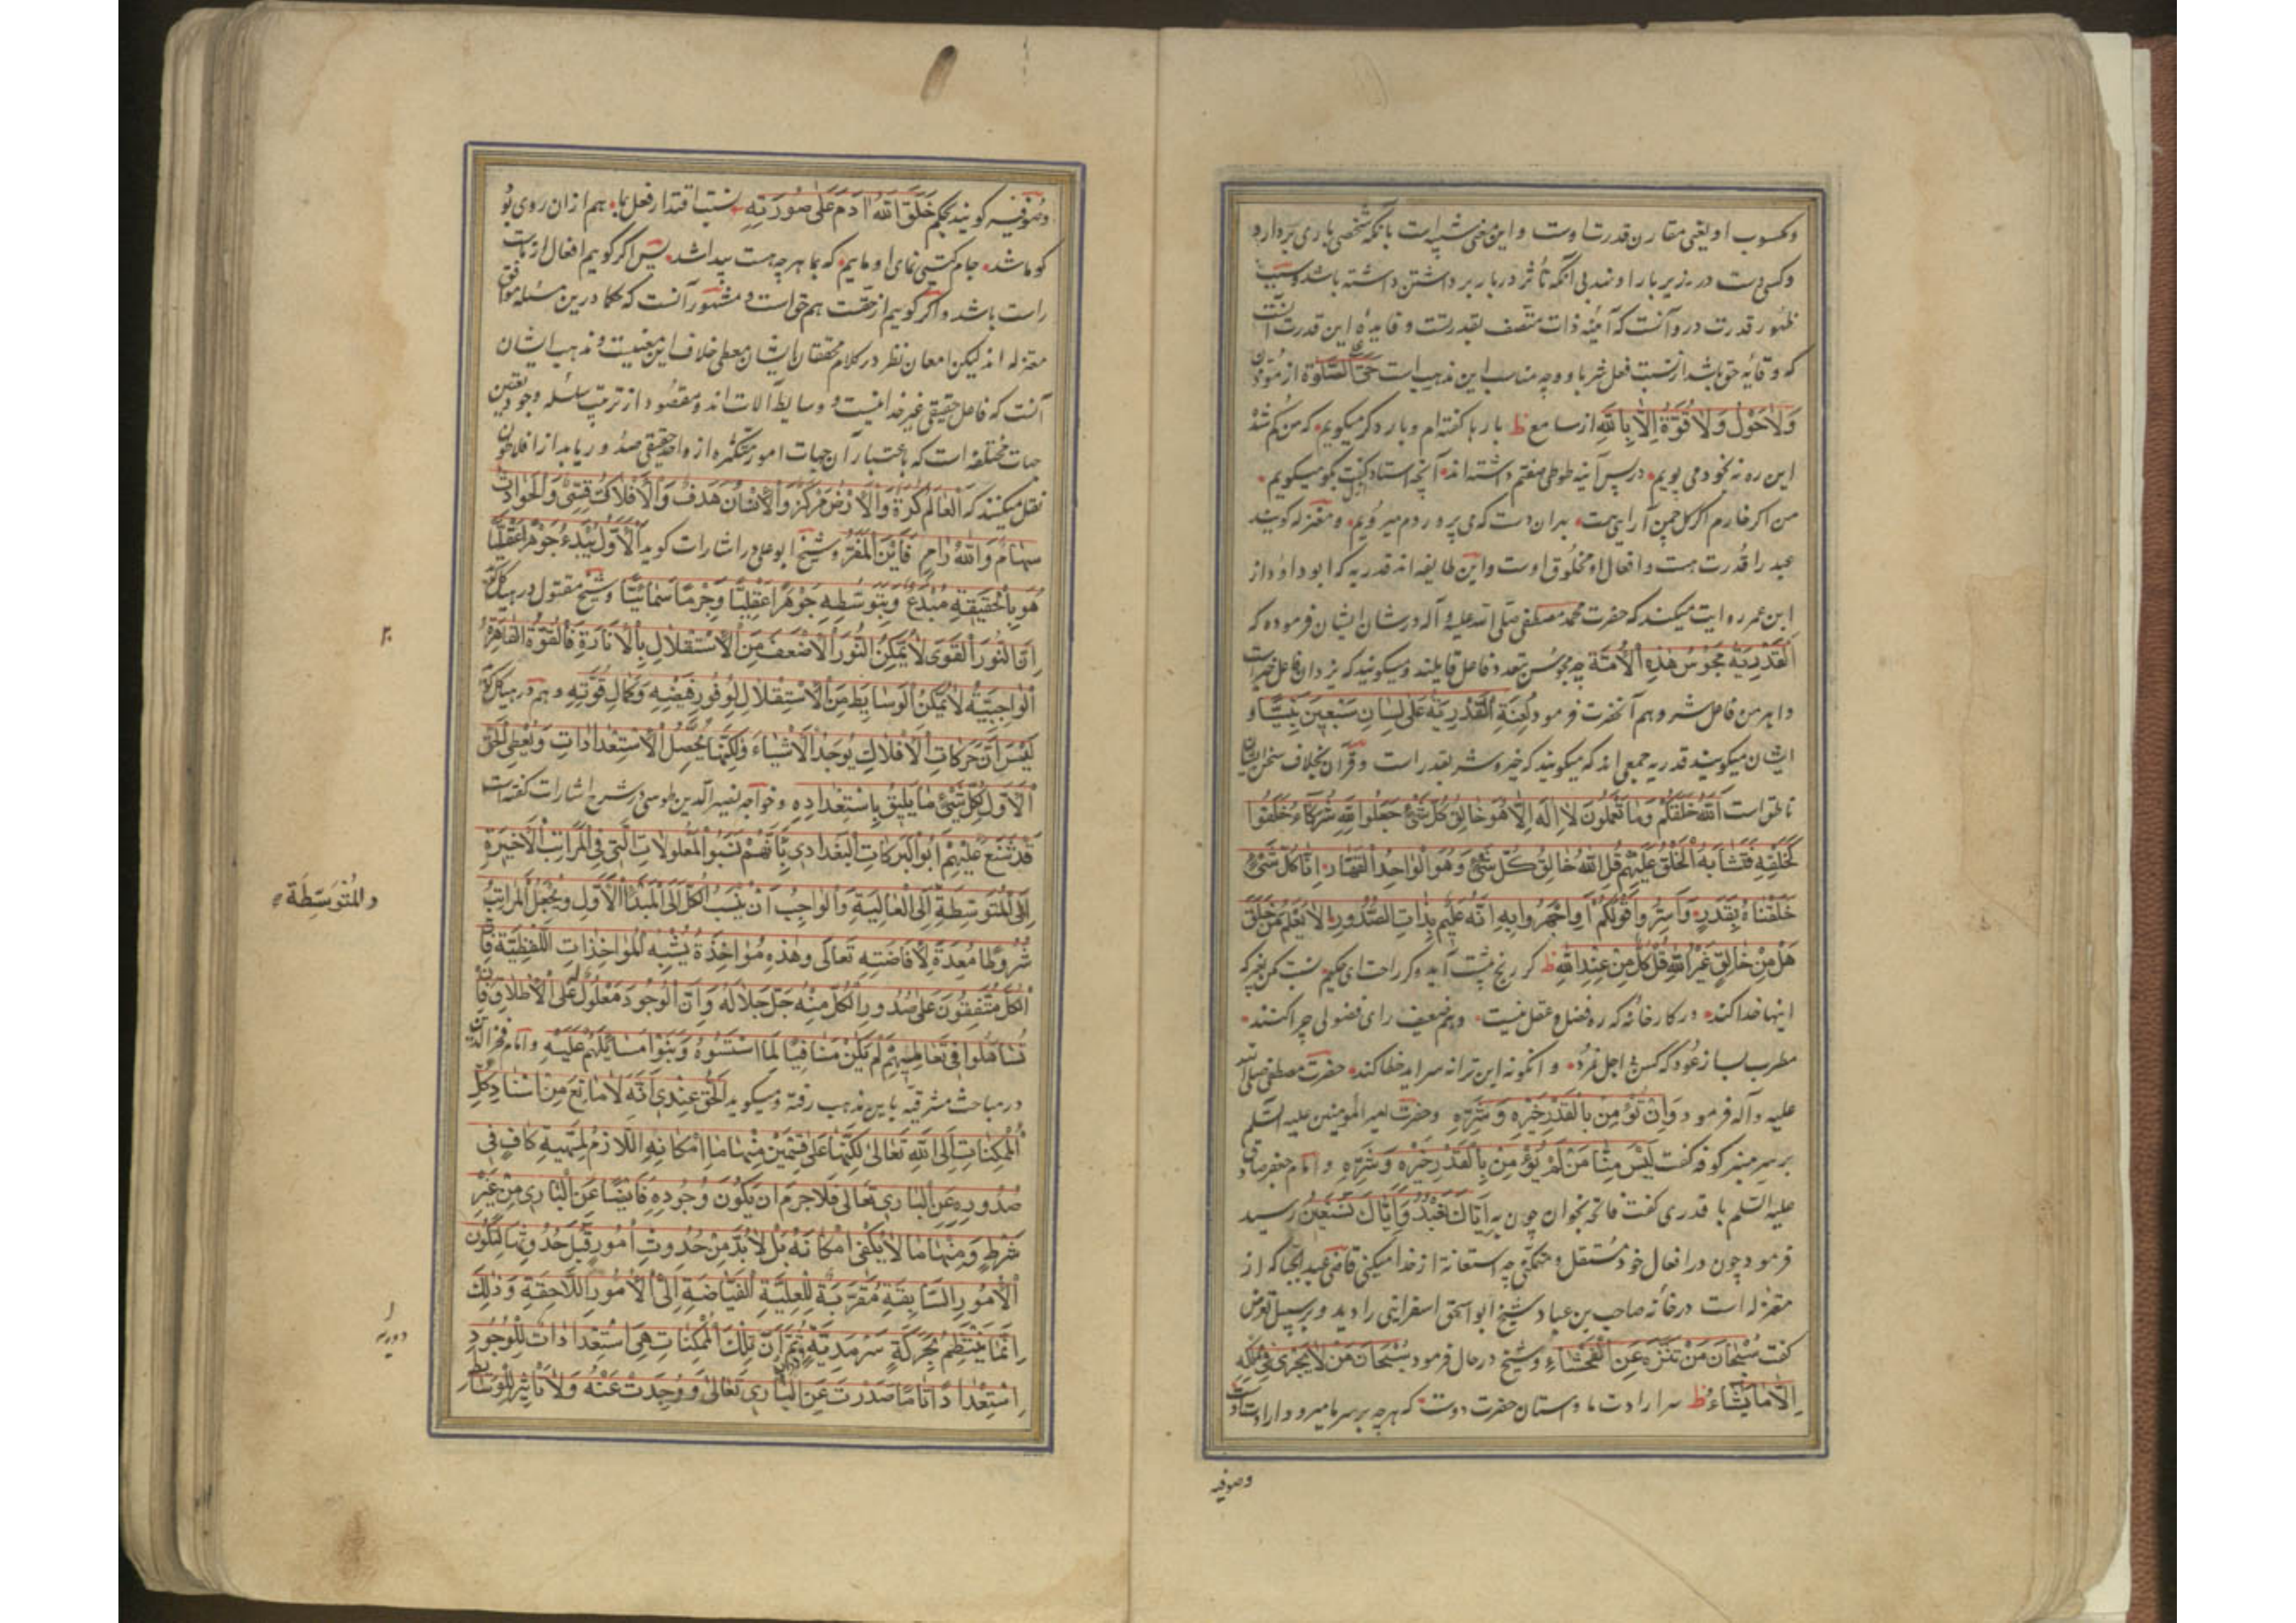 و مکسوب او یعنی مقارن قدرت اوست و این معنی شبیه است بآنکه شخصی باری بردارد
و کسی دست در زیر بار او نهد بی آنکه تأثر در بار برداشتن داشته باشد و سبب
ظهور قدرت در و آنست که آینه ذات متصف بقدرتست و فایده این قدرت آنست
که وقایه حق باشد از نسبت فعل شر باو و چه مناسب این مذهب است حی الصلوة از مؤذن
وَلَاحَوْلَ وَلَاقُوَّةَ اِلَّا بِاللهِ از سامع ظ بارها کفته ام و بار دکر میکویم که من کم شده
این ره نه بخود می پویم در پس آینه طوطی صفتم داشته اند آنچه استاد کفت بگو میکویم
من اکر خارم اکر کل چمن آرایی هست بدان دست که می پروردم میرویم و معتزله کویند
عبد را قدرت هست و افعال او مخلوق اوست و این طایفه اند قدریه که ابو داود از
ابن عمر روایت میکند که حضرت محمد مصطفی صلی الله علیه و آله در شان ایشان فرموده که
اَلْقَدَرِيَّةُ مَجُوسُ هٰذِهِ الْاُمَّةِ چه مجوس بتعدد فاعل قایلند و میکویند که یزدان فاعل خیرست
و اهرمن فاعل شر و هم آنحضرت فرمود لُعِنَةِ الْقَدَرِيَّةُ عَلٰى لِسَانِ سَبْعِينَ نَبِيًّا و
ایشان میکویند قدریه جمعی اند که میکویند که خیر و شر بقدر است و قرآن بخلاف سخن ایشان
ناطق است اَللهُ خَلَقَكُمْ وَمَا تَعْمَلُونَ لَا اِلٰهَ اِلَّا هُوَ خَالِقُ كُلِّ شَيْءٍ جَعَلُوا لِلّٰهِ شُرَكَاءَ خَلَقُوا
كَخَلْقِهِ فَتَشَابَهَ الْخَلْقُ عَلَيْهِمْ قُلِ اللهُ خَالِقُ كُلِّ شَيْءٍ وَهُوَ الْوَاحِدُ الْقَهَّارُ اِنَّا كُلَّ شَيْءٍ
خَلَقْنَاهُ بِقَدَرٍ وَاَسِرُّوا قَوْلَكُمْ اَوِاجْهَرُوا بِهِ اِنَّهُ عَلِيمٌ بِذَاتِ الصُّدُورِ اَلَا يَعْلَمُ مَنْ خَلَقَ
هَلْ مِنْ خَالِقٍ غَيْرُ اللهِ قُلْ كُلٌّ مِنْ عِنْدِ اللهِ ظ کر رنج پیشت آید و کر راحت ای حکیم نسبت مکن بغیر که
اینها خدا کند در کارخانه که ره فضل و عقل نیست وهم ضعیف رای فضولی چرا کند
مطرب بساز عود که کس بی اجل نمرد و آنکو نه این ترانه سراید خطا کند حضرت مصطفی صلی الله
علیه و آله فرمود وَاَنْ تُؤْمِنَ بِالْقَدَرِ خَيْرِهِ وَشَرِّهِ و حضرت امیر المؤمنین علیه السلم
بر سر منبر کوفه کفت لَيْسَ مِنَّا مَنْ لَمْ يُؤْمِنْ بِالْقَدَرِ خَيْرِهِ وَشَرِّهِ و امام جعفر صادق
علیه السلم با قدری کفت فاتحه بخوان چون به اِيَّاكَ نَعْبُدُ وَاِيَّاكَ نَسْتَعِينُ رسید
فرمود چون در افعال خود مستقل و متمکنی چه استعانة از خدا میکنی قاضی عبد الجبار که از
معتزله است در خانه صاحب بن عباد شیخ ابو اسحق اسفراینی را دید و بر سبیل تعرض
کفت سُبْحَانَ مَنْ تَنَزَّهَ عَنِ الْفَحْشَاءِ و شیخ در حال فرمود سُبْحَانَ مَنْ لَا يَجْرِي فِي مُلْكِهِ
اِلَّا مَا يَشَاءُ ظ سر ارادت ما و آستان حضرت دوست که هر چه بر سر ما میرود ارادت اوست
وصوفیه
وصوفیه کویند بحکم خَلَقَ اللهُ اٰدَمَ عَلٰى صُورَتِهِ نسبت اقتدار فعل بما هم ازان روی بو
کو ما شد جام کیتی نمای او مایم که بما هر چه هست پیدا شد پس اکر کویم افعال از ماست
راست باشد و اکر کویم از حقست هم حق است و مشهور آنست که حکما درین مسئله موافق
معتزله اند لیکن امعان نظر در کلام محققان ایشان معطی خلاف این معنیست و مذهب ایشان
آنست که فاعل حقیقی غیر خدا نیست و وسایط آلات اند و مقصود از ترتیب سلسله وجود تعیین
جهات مختلفه است که باعتبار آن جهات امور متکثره از واحد حقیقی صدور یابد از افلاطون
نقل میکنند که اَلْعَالَمُ كُرَةٌ وَالْاَرْضُ مَرْكَزٌ وَالْاِنْسَانُ هَدَفٌ وَالْاَفْلَاكُ قِسِيٌّ وَالْحَوَادِثُ
سِهَامٌ وَاللهُ رَامٍ فَاَيْنَ الْمَفَرُّ و شیخ ابو علی در اشارات کوید اَلْاَوَّلُ يُبْدِعُ جَوْهَرًا عَقْلِيًّا
هُوَ بِالْحَقِيقَةِ مُبْدَعٌ وَبِتَوَسُّطِهِ جَوْهَرًا عَقْلِيًّا وَجِرْمًا سَمَائِيًّا و شیخ مقتول در هیاکل کوید
اِنَّ النُّورَ الْقَوِىَّ لَا يُمَكِّنُ النُّورَ الْاَضْعَفَ مِنَ الْاِسْتِقْلَالِ بِالْاِنَارَةِ فَالْقُوَّةُ الْقَاهِرَةُ
الْوَاجِبِيَّةُ لَا تُمَكِّنُ الْوَسَايِطَ مِنَ الْاِسْتِقْلَالِ لِوُفُورِ فَيْضِهِ وَكَمَالِ قُوَّتِهِ و هم در هیاکل کوید
لَيْسَ اَنَّ حَرَكَاتِ الْاَفْلَاكِ يُوجَدُ الْاَشْيَاءَ وَلٰكِنَّهَا يُحَصِّلُ الْاِسْتِعْدَادَاتِ وَيُعْطِي الْحَقُّ
الْاَوَّلُ لِكُلِّ شَيْءٍ مَا يَلِيقُ بِاسْتِعْدَادِهِ و خواجه نصیر الدین طوسی در شرح اشارات کفته است
قَدْ شَنَّعَ عَلَيْهِمْ اَبُو الْبَرَكَاتِ الْبَغْدَادِي بِاَنَّهُمْ نَسَبُوا الْمَعْلُولَاتِ الَّتِي فِي الْمَرَاتِبِ الْاَخِيرَةِ
اِلَى الْمُتَوَسِّطَةِ اِلَى الْعَالِيَةِ وَالْوَاجِبُ اَنْ يُنْسَبَ الْكُلُّ اِلَى الْمَبْدَأِ الْاَوَّلِ وَيُجْعَلَ الْمَرَاتِبُ
والمُتَوَسِّطَة
شُرُوطًا مُعِدَّةً لِاِفَاضَتِهِ تَعَالٰى وَهٰذِهِ مُوَاخَذَةٌ يُشْبِهُ الْمُوَاخَذَاتِ اللَّفْظِيَّةَ فَاِنَّ
الْكُلَّ مُتَّفِقُونَ عَلٰى صُدُورِ الْكُلِّ مِنْهُ جَلَّ جَلَالُهُ وَاَنَّ الْوُجُودَ مَعْلُولٌ لَهُ عَلَى الْاِطْلَاقِ فَاِنْ
تَسَاهَلُوا فِي تَعَالِيمِهِمْ لَمْ يَكُنْ مُنَافِيًا لِمَا اسَّسُوهُ وَبَنَوْا مَسَايِلَهُمْ عَلَيْهِ و امام فخر الدین
در مباحث مشرقیه باین مذهب رفته و میکوید اَلْحَقُّ عِنْدِي اَنَّهُ لَا مَانِعَ مِنْ اِسْنَادِ كُلِّ
الْمُمْكِنَاتِ اِلَى اللهِ تَعَالٰى لٰكِنَّهَا عَلٰى قِسْمَيْنِ مِنْهَا مَا اِمْكَانُهُ اللَّازِمُ لِمَهِيَّتِهِ كَافٍ فِي
صُدُورِهِ عَنِ الْبَارِي تَعَالٰى فَلَا جَرَمَ اَنْ يَكُونَ وُجُودِهِ فَايِضًا عَنِ الْبَارِي مِنْ غَيْرِ
شَرْطٍ وَمِنْهَا مَا لَا يَكْفِي اِمْكَانُهُ بَلْ لَا بُدَّ مِنْ حُدُوثِ اُمُورٍ قَبْلَ حُدُوثِهَا لِتَكُونَ
الْاُمُورُ السَّابِقَةُ مُقَرِّبَةً لِلْعِلِّيَّةِ الْفَيَّاضَةِ اِلَى الْاُمُورِ اللَّاحِقَةِ وَذٰلِكَ
اِنَّمَا يَنْتَظِمُ بِحَرَكَةٍ سَرْمَدِيَّةٍ ثُمَّ اِنَّ تِلْكَ الْمُمْكِنَاتِ مَتَى اسْتَعَدَّاداتُ لِلْوُجُودِ
دوریه
اِسْتِعْدَادًا تَامًّا صَدَرَتْ عَنِ الْبَارِي تَعَالٰى وَوُجِدَتْ عَنْهُ وَلَا تَاْثِيرَ لِلْوَسَايِطِ